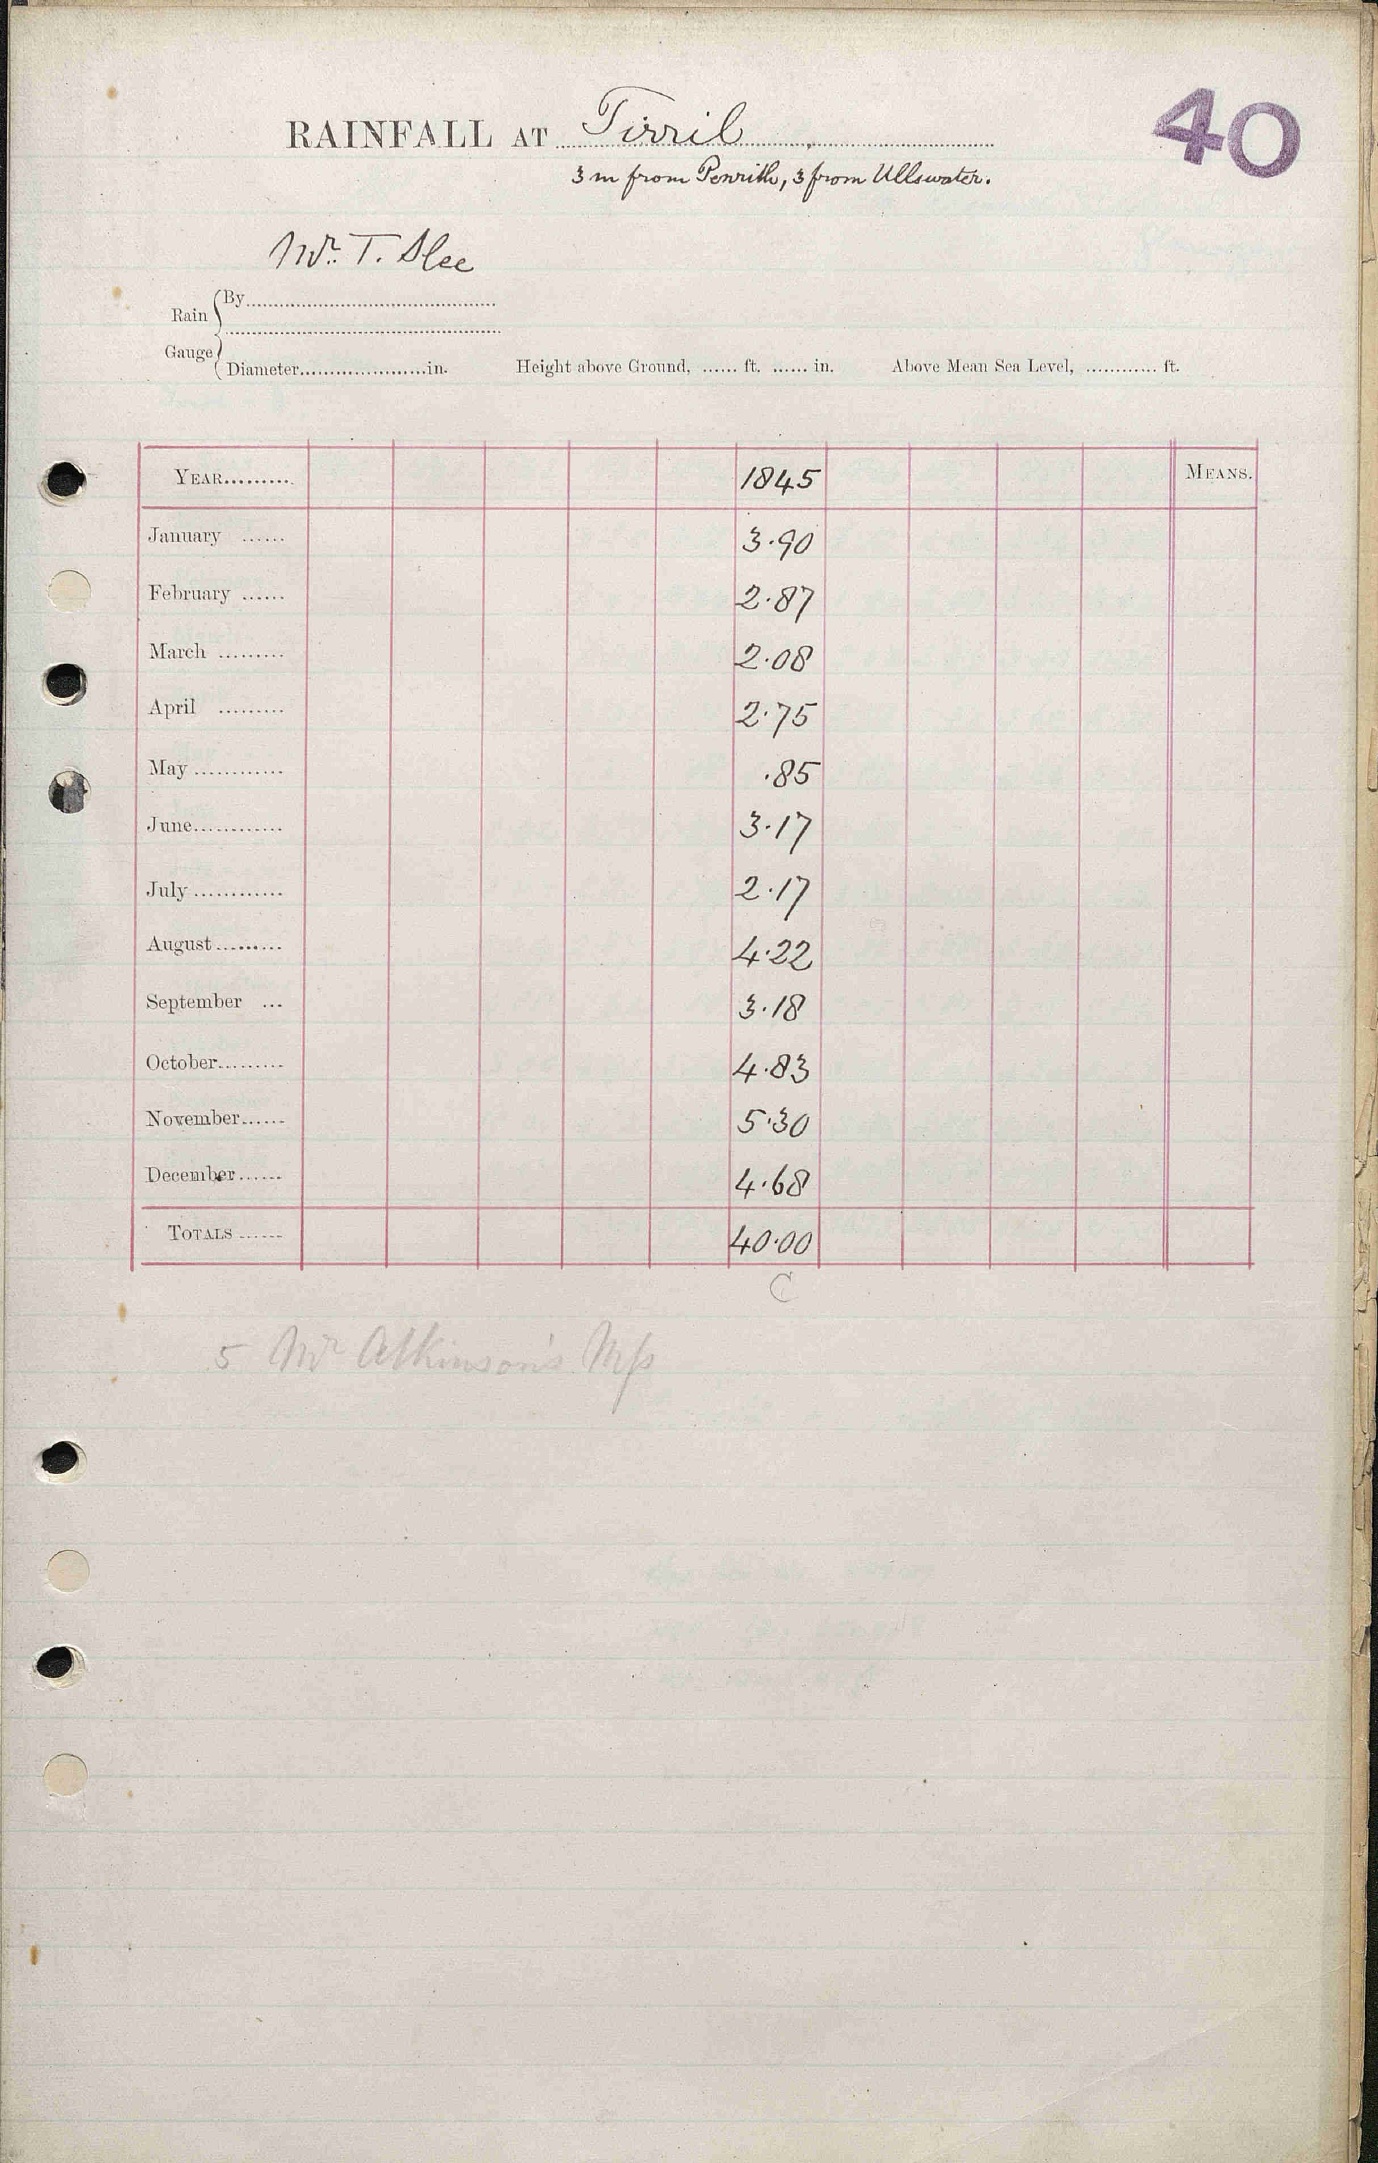 40
RAINFALL AT Tirril
3 m from Penrith, 3 from Ullswater.
Mr. T. Slee
Rain Gauge
By
Diameter in. Height above Ground, ft. in. Above Mean Sea Level, ft.
YEAR 1845 MEANS.
January 3.90
February 2.87
March 2.08
April 2.75
May .85
June 3.17
July 2.17
August 4.22
September 3.18
October 4.83
November 5.30
December 4.68
TOTALS 40.00
C
5 Mr Atkinson's Mfs